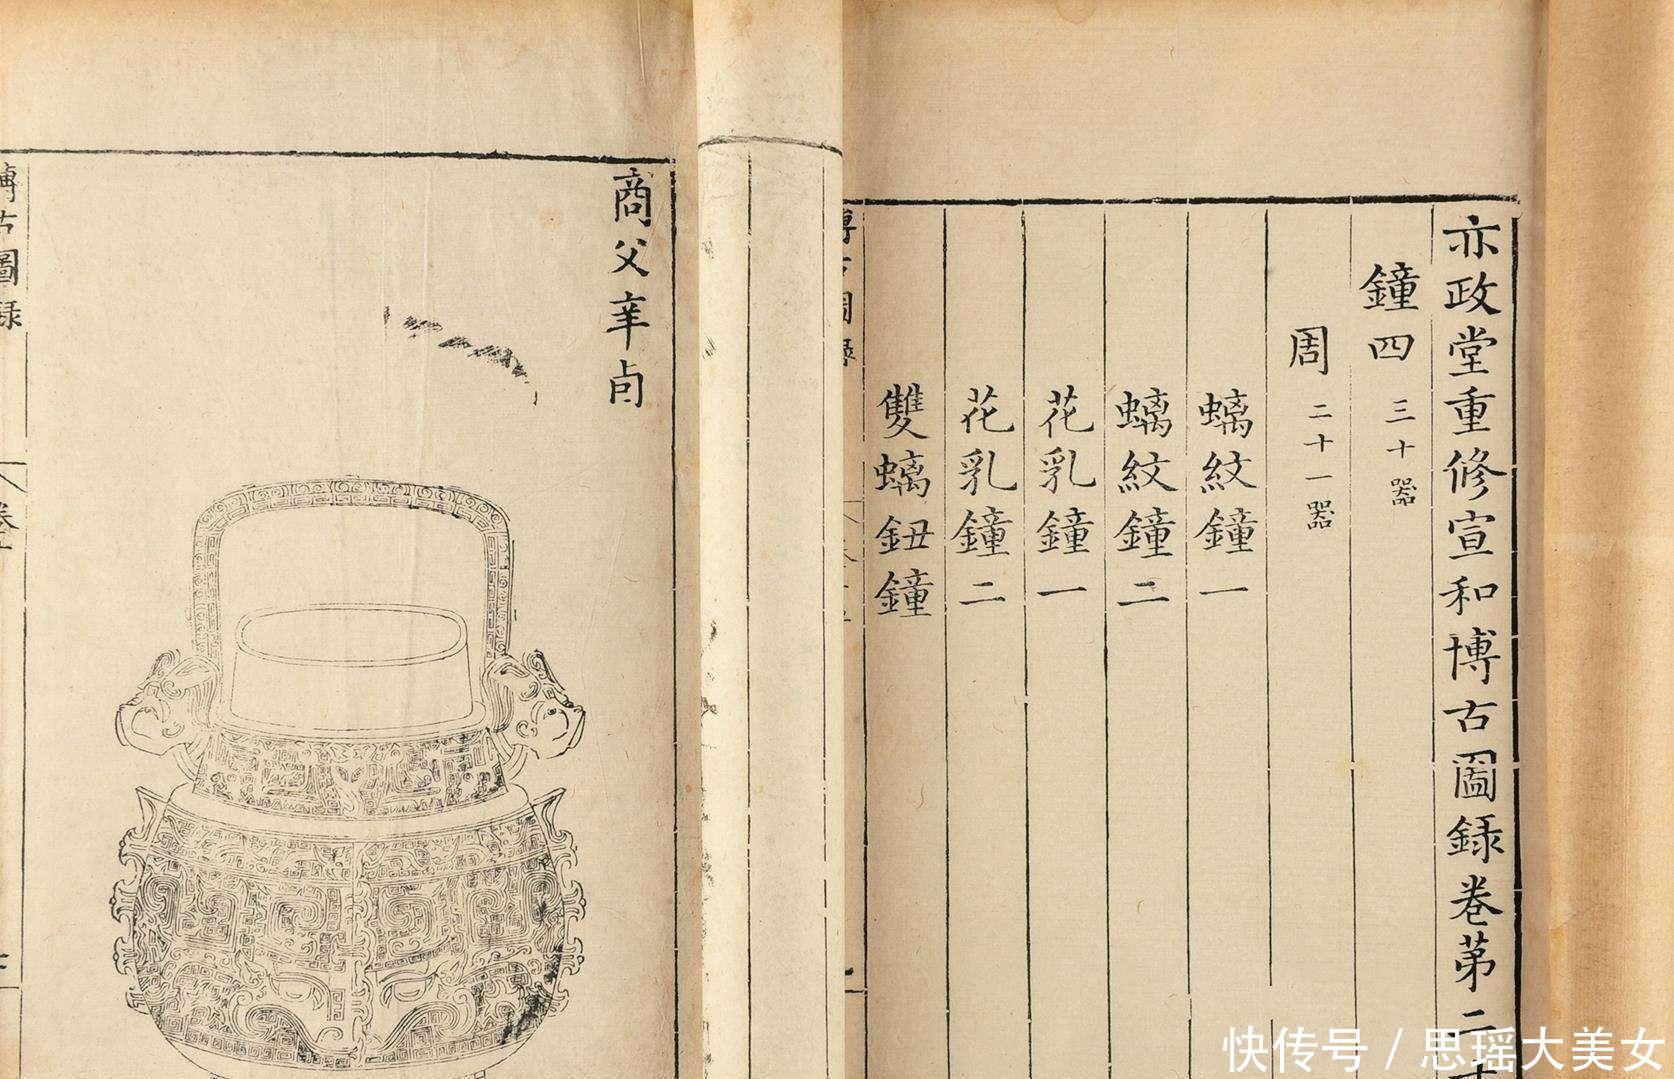 亦政堂重修宣和博古圖録卷第二十
鐘四 三十器
周 二十一器
螭紋鐘一
螭紋鐘二
花乳鐘一
花乳鐘二
雙螭鈕鐘
商父辛卣
博古圖録
快传号 / 思瑶大美女